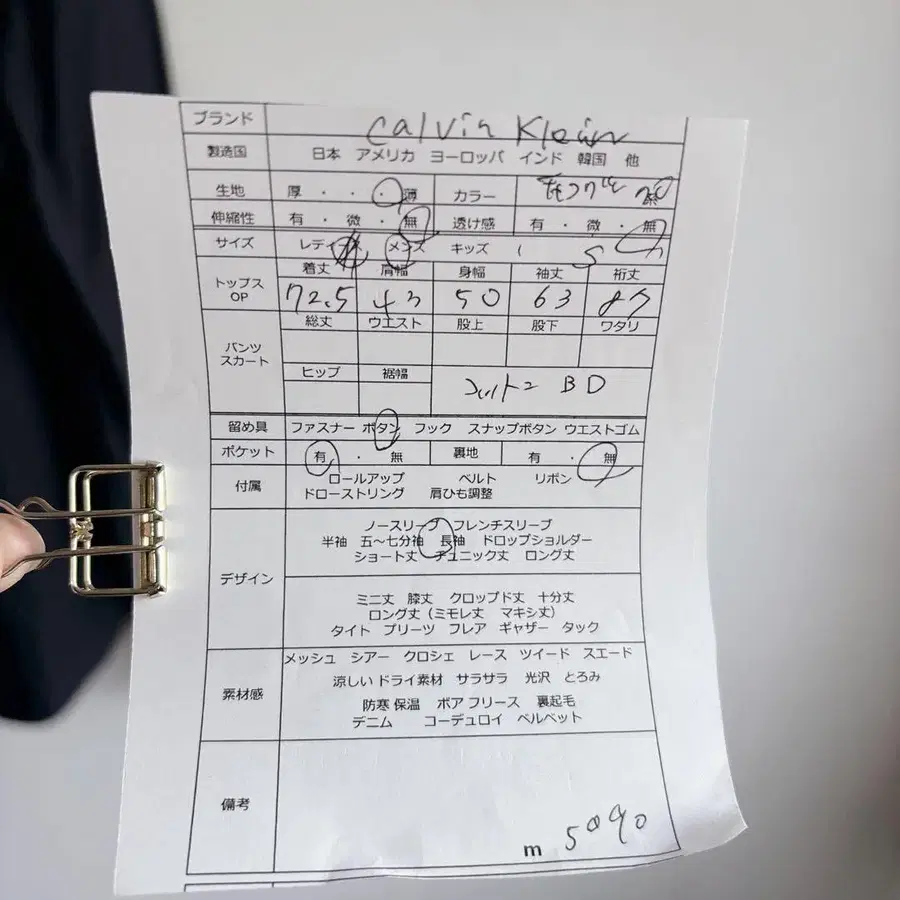 ブランド Calvin Klein
製造国 日本 アメリカ ヨーロッパ インド 韓国 他
生地 厚・・・薄 カラー
伸縮性 有・微・無 透け感 有・微・無
サイズ レディース メンズ キッズ ( S )
トップス OP 着丈 肩幅 身幅 袖丈 裄丈
72.5 43 50 63 87
パンツ スカート 総丈 ウエスト 股上 股下 ワタリ
ヒップ 裾幅 BD
留め具 ファスナー ボタン フック スナップボタン ウエストゴム
ポケット 有・無 裏地 有・無
付属 ロールアップ ベルト リボン
ドローストリング 肩ひも調整
デザイン ノースリーブ フレンチスリーブ
半袖 五〜七分袖 長袖 ドロップショルダー
ショート丈 チュニック丈 ロング丈
ミニ丈 膝丈 クロップド丈 十分丈
ロング丈（ミモレ丈 マキシ丈）
タイト プリーツ フレア ギャザー タック
素材感 メッシュ シアー クロシェ レース ツイード スエード
涼しい ドライ素材 サラサラ 光沢 とろみ
防寒 保温 ボア フリース 裏起毛
デニム コーデュロイ ベルベット
備考
m 5090